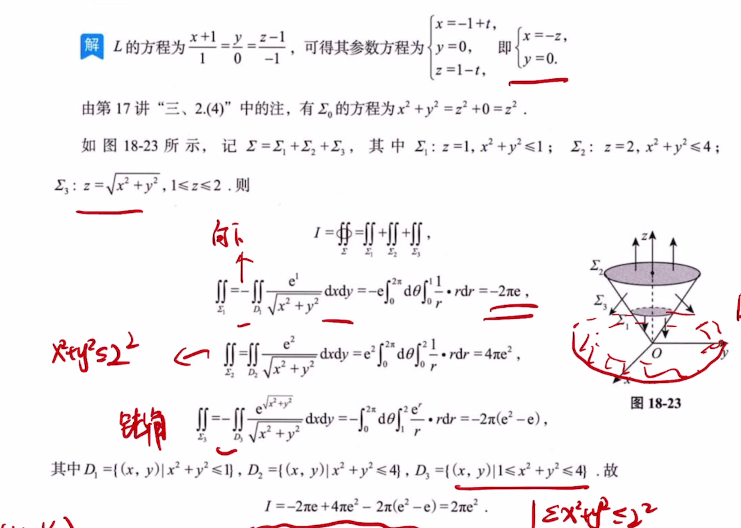 解 L的方程为 (x+1)/1 = y/0 = (z-1)/(-1) ，可得其参数方程为 { x=-1+t, y=0, z=1-t, 即 { x=-z, y=0.
由第17讲“三、2.(4)”中的注，有Σ₀的方程为x²+y²=z²+0=z².
如图18-23所示，记Σ=Σ₁+Σ₂+Σ₃，其中Σ₁: z=1, x²+y²≤1; Σ₂: z=2, x²+y²≤4;
Σ₃: z=√(x²+y²), 1≤z≤2 .则
向下
I=∯_Σ=∬_Σ₁+∬_Σ₂+∬_Σ₃,
∬_Σ₁=-∬_D₁ e¹/√(x²+y²) dxdy=-e∫₀^2π dθ∫₀¹ 1/r • rdr=-2πe ,
x²+y²≤2² ← ∬_Σ₂=∬_D₂ e²/√(x²+y²) dxdy=e²∫₀^2π dθ∫₀² 1/r • rdr=4πe² ,
∬_Σ₃=-∬_D₃ e^√(x²+y²)/√(x²+y²) dxdy=-∫₀^2π dθ∫₁² e^r/r • rdr=-2π(e²-e),
z
Σ₂
Σ₃
Σ₁
O
y
x
图18-23
其中D₁={(x, y)|x²+y²≤1}, D₂={(x, y)|x²+y²≤4}, D₃={(x, y)|1≤x²+y²≤4} .故
I=-2πe+4πe²-2π(e²-e)=2πe² .
1≤x²+y²≤2²